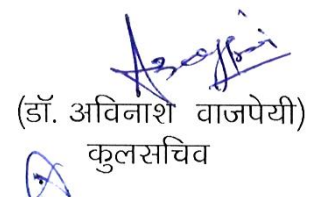 (डॉ. अविनाश वाजपेयी)
कुलसचिव